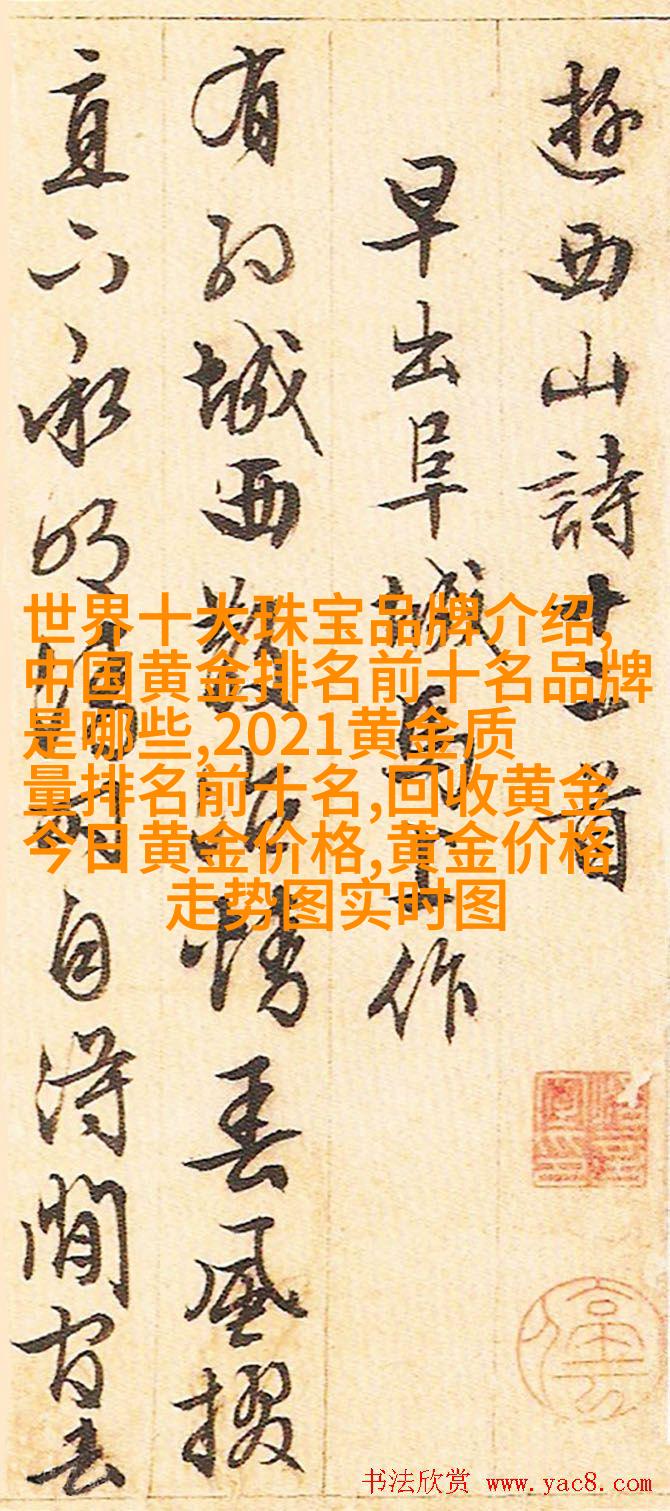 遊西山詩十二首
早出阜城馬上作
有約城西散冶情春風掇
直下承明時自得閒官去
世界十大珠宝品牌介绍,
中国黄金排名前十名品牌
是哪些,2021黄金质
量排名前十名,回收黄金
今日黄金价格,黄金价格
走势图实时图
书法欣赏 www.yac8.com